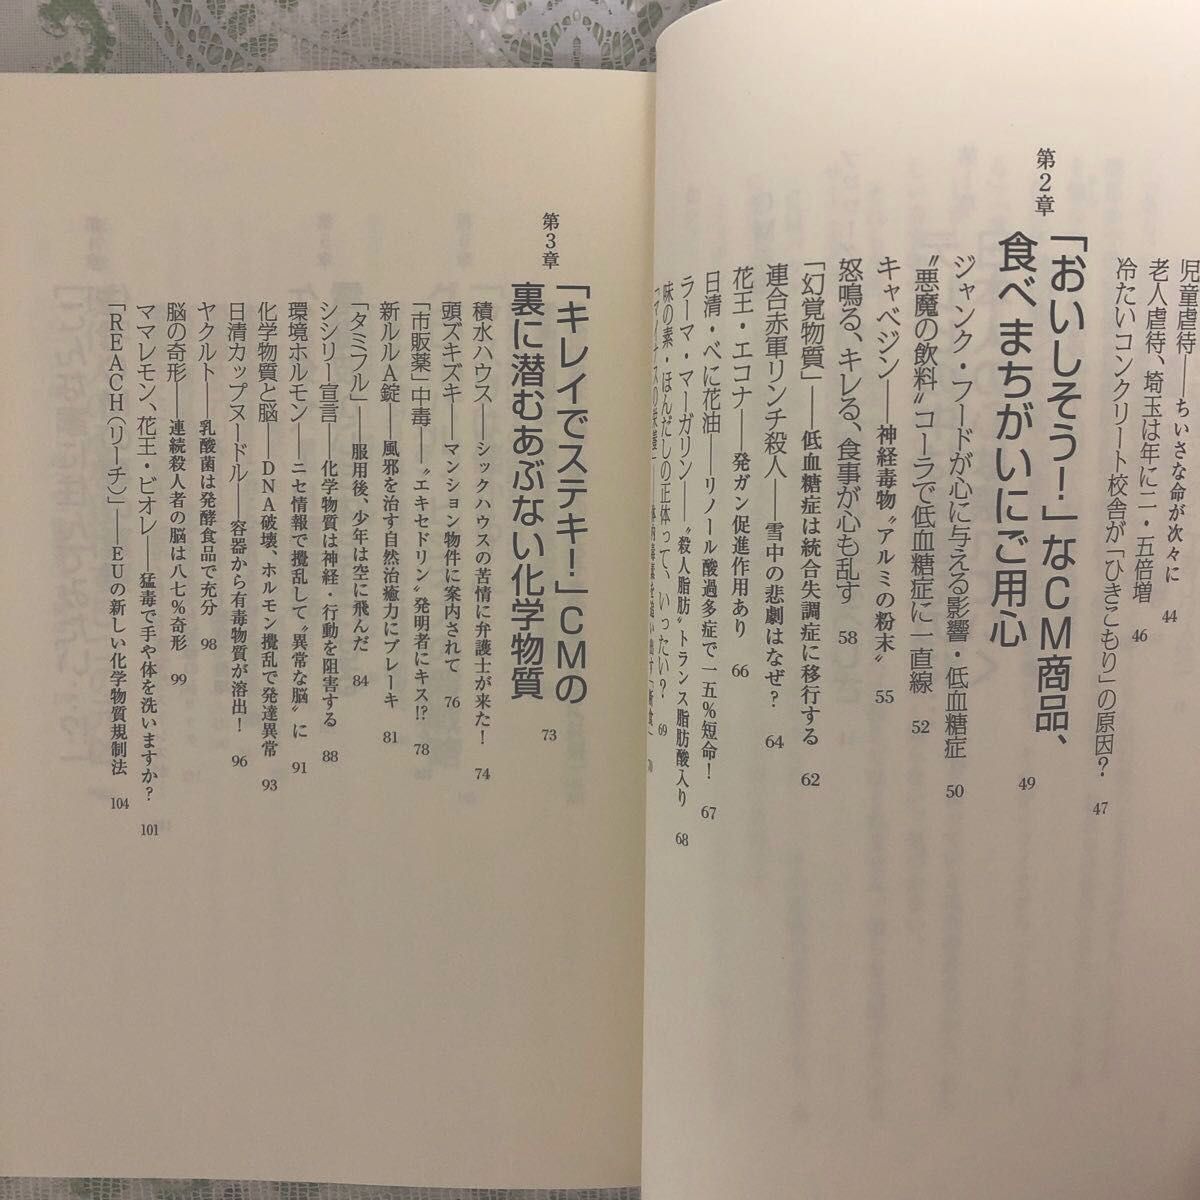 児童虐待――ちいさな命が次々に 44
老人虐待、埼玉は年に二・五倍増 46
冷たいコンクリート校舎が「ひきこもり」の原因？ 47
第2章 「おいしそう！」なＣＭ商品、
食べまちがいにご用心 49
ジャンク・フードが心に与える影響・低血糖症 50
〝悪魔の飲料〟コーラで低血糖症に一直線 52
キャベジン――神経毒物〝アルミの粉末〟 55
怒鳴る、キレる、食事が心も乱す 58
「幻覚物質」――低血糖症は統合失調症に移行する 62
連合赤軍リンチ殺人――雪中の悲劇はなぜ？ 64
花王・エコナ――発ガン促進作用あり 66
日清・べに花油――リノール酸過多症で一五％短命！ 67
ラーマ・マーガリン――〝殺人脂肪〟トランス脂肪酸入り 68
味の素・ほんだしの正体って、いったい？ 69
第3章 「キレイでステキ！」ＣＭの
裏に潜むあぶない化学物質 73
積水ハウス――シックハウスの苦情に弁護士が来た！ 74
頭ズキズキ――マンション物件に案内されて 76
「市販薬」中毒――〝エキセドリン〟発明者にキス!? 78
新ルルＡ錠――風邪を治す自然治癒力にブレーキ 81
「タミフル」――服用後、少年は空に飛んだ 84
シシリー宣言――化学物質は神経・行動を阻害する 88
環境ホルモン――ニセ情報で攪乱して〝異常な脳〟に 91
化学物質と脳――ＤＮＡ破壊、ホルモン攪乱で発達異常 93
日清カップヌードル――容器から有毒物質が溶出！ 96
ヤクルト――乳酸菌は発酵食品で充分 98
脳の奇形――連続殺人者の脳は八七％奇形 99
ママレモン、花王・ビオレ――猛毒で手や体を洗いますか？ 101
「ＲＥＡＣＨ（リーチ）」――ＥＵの新しい化学物質規制法 104